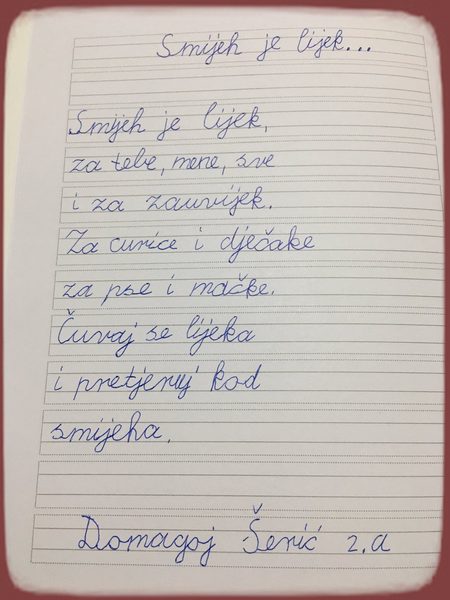 Smijeh je lijek...
Smijeh je lijek,
za tebe, mene, sve
i za zauvijek.
Za curice i dječake
za pse i mačke.
Čuvaj se lijeka
i pretjeruj kod
smijeha.
Domagoj Šerić 2.a